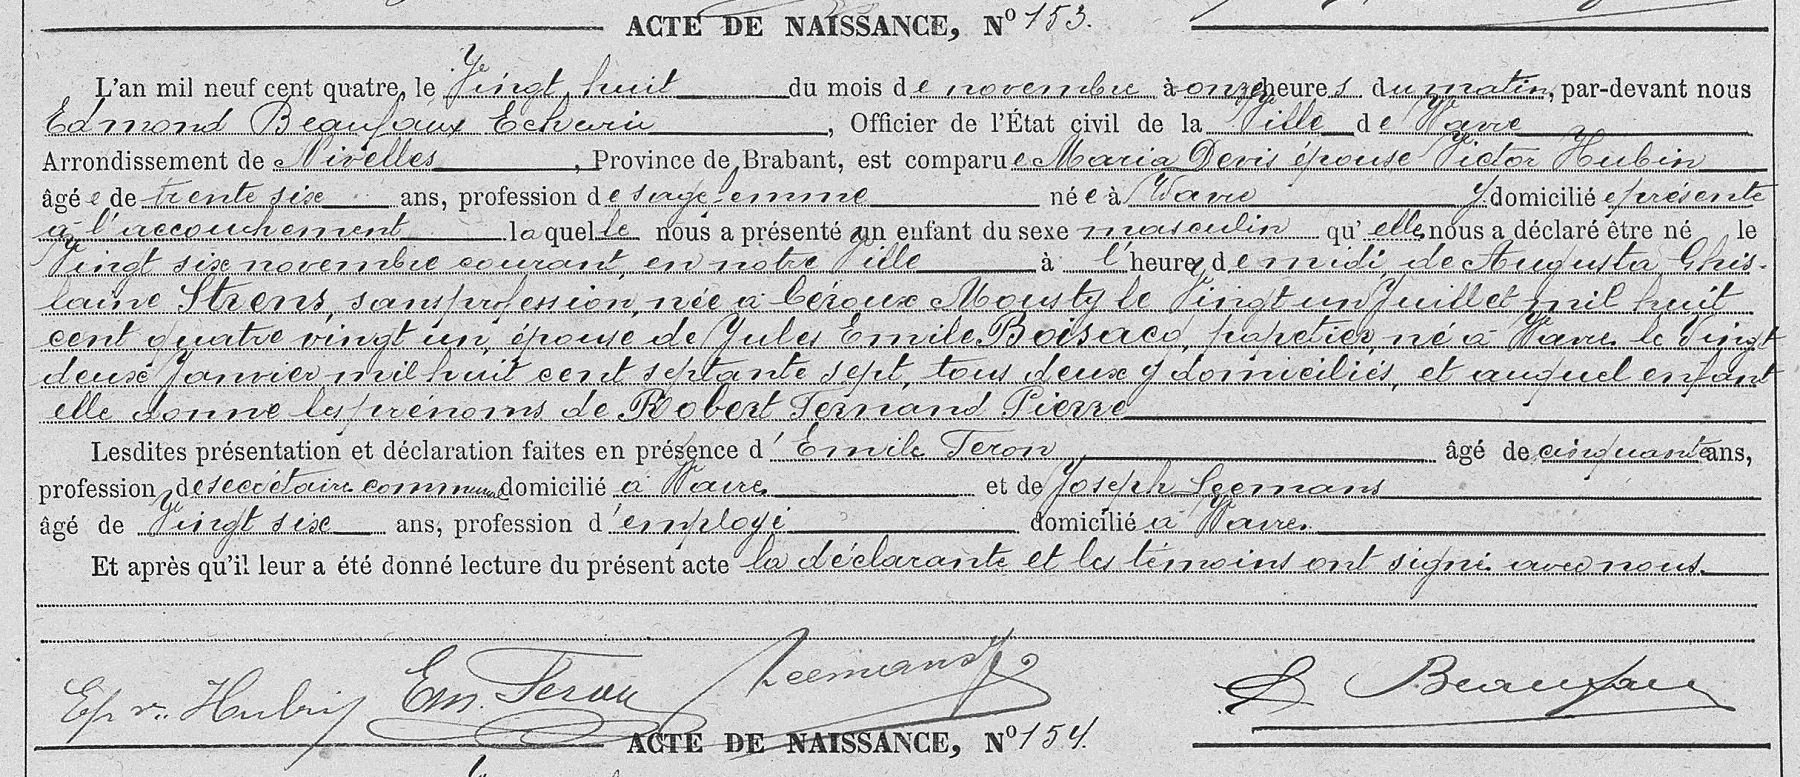 ACTE DE NAISSANCE, Nº 153.
L'an mil neuf cent quatre, le Vingt huit du mois de novembre à onze heures du matin, par-devant nous
Edmond Beaufaux Echevin, Officier de l'État civil de la Ville de Wavre
Arrondissement de Nivelles, Province de Brabant, est comparue Maria Devis épouse Victor Hubin
âgée de trente six ans, profession de sage-femme née à Wavre y domiciliée présente
à l'accouchement laquelle nous a présenté un enfant du sexe masculin qu'elle nous a déclaré être né le
Vingt six novembre courant, en notre Ville à l'heure de midi, de Augusta Ghis-
laine Strens, sans profession, née à Céroux Mousty le Vingt un Juillet mil huit
cent quatre vingt un, épouse de Jules Emile Boisacq, papetier, né à Wavre le Vingt
deux Janvier mil huit cent septante sept, tous deux y domiciliés, et auquel enfant
elle donne les prénoms de Robert Fernand Pierre
Lesdites présentation et déclaration faites en présence d'Emile Feron âgé de cinquante ans,
profession de secrétaire communal domicilié à Wavre et de Joseph Leemans
âgé de Vingt six ans, profession d'employé domicilié à Wavre.
Et après qu'il leur a été donné lecture du présent acte la déclarante et les témoins ont signé avec nous.
Ep v. Hubin Em. Feron Leemans J E Beaufaux
ACTE DE NAISSANCE, Nº 154.